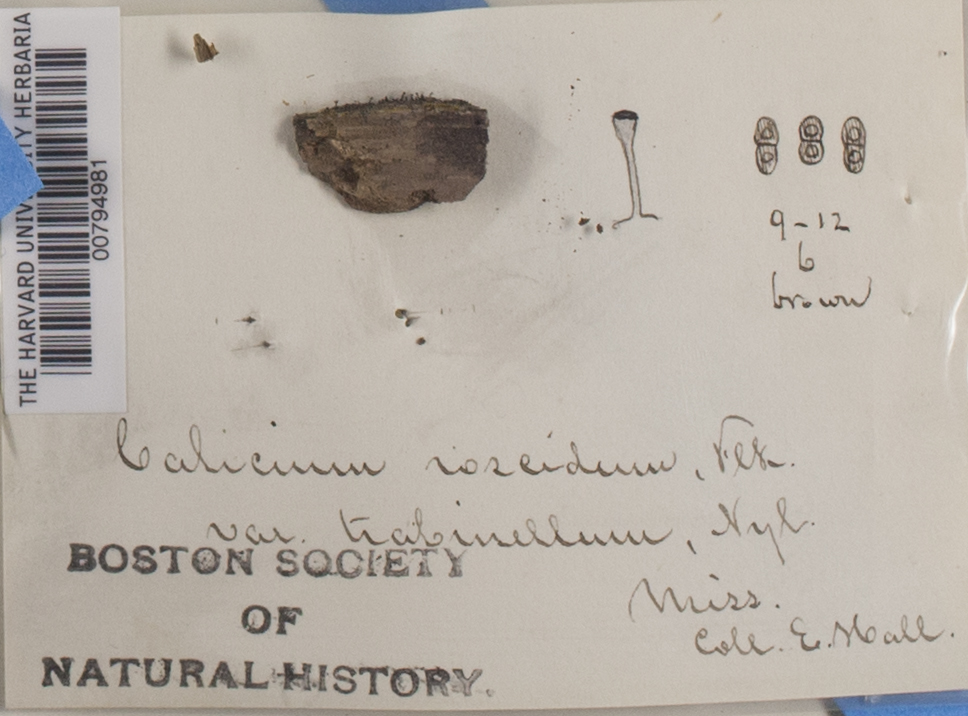 THE HARVARD UNIVERSITY HERBARIA
00794981
9-12
6
brown
Calicium roscidum, Flk.
var. trabinellum, Nyl.
BOSTON SOCIETY
OF
NATURAL HISTORY.
Miss.
Coll. E. Hall.